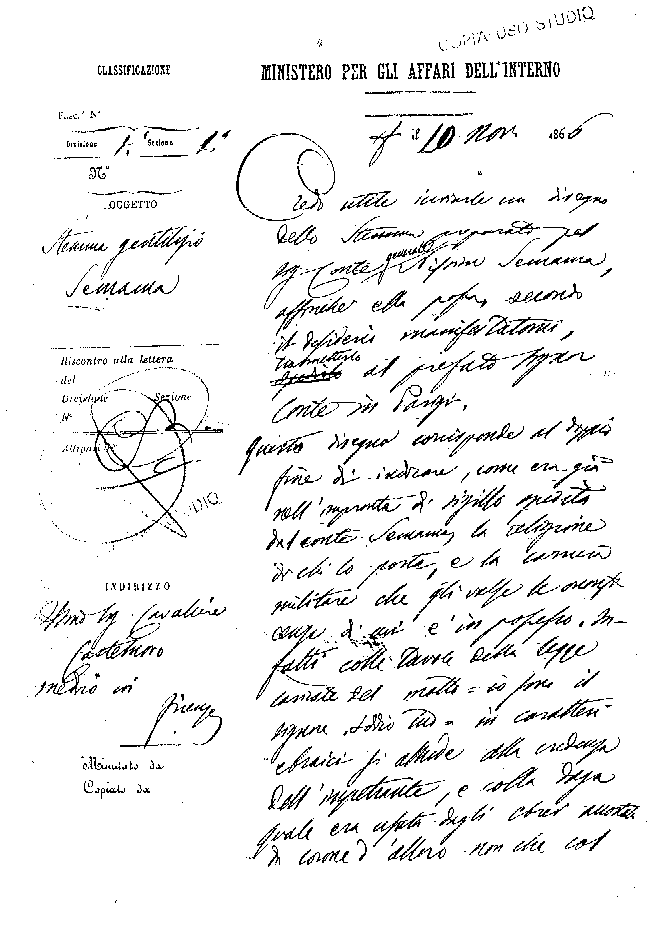 COPIA USO STUDIO
CLASSIFICAZIONE
MINISTERO PER GLI AFFARI DELL'INTERNO
Fasc.° N°
Divisione 1.a Sezione 1.a
N°
OGGETTO
Stemma gentilizio
Semama
il 10 Nov 1866
Credo utile inviarle un disegno
dello Stemma preparato pel
Sig. Conte generale Nissim Semama,
affinche ella possa, secondo
il desiderio manifestatomi,
trasmetterlo
al prefato Signor
Conte in Parigi.
Questo disegno corrisponde al doppio
fine di indicare, come era già
nell'impronta di sigillo spedita
dal conte Semama, la religione
di chi lo porta, e la carriera
militare che gli valse le onorifi
cenze di cui è in possesso. In-
fatti colle tavole della legge
del motto = io sono il
signore Iddio tuo = in caratteri
ebraici si allude alla credenza
dell'impetrante, e colla daga
quale era usata dagli ebrei
di corone d'alloro non che col
Riscontro alla lettera
del
Divisione Sezione
N°
STUDIO
INDIRIZZO
Sig Cavaliere
Castelnuovo
medico in
Firenze
Minutato da
Copiato da